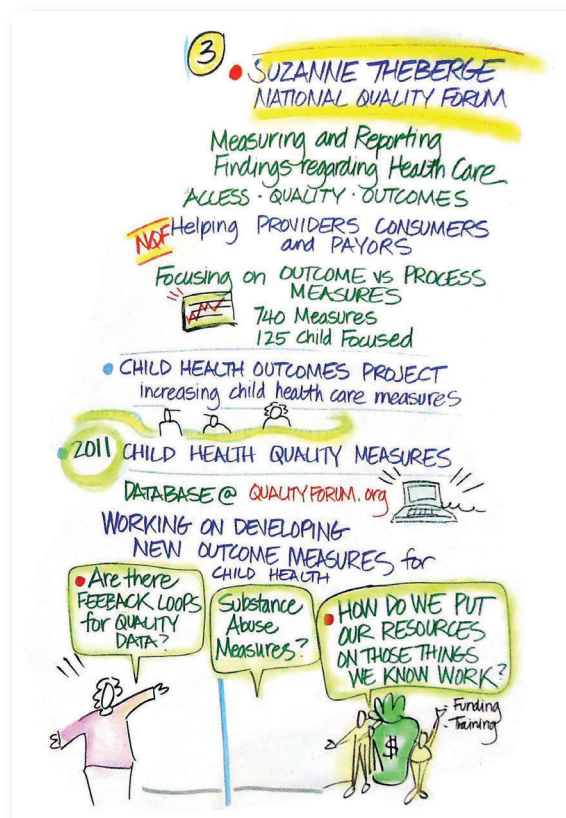 3
SUZANNE THEBERGE
NATIONAL QUALITY FORUM
Measuring and Reporting
Findings regarding Health Care
ACCESS · QUALITY · OUTCOMES
NQF Helping PROVIDERS CONSUMERS
and PAYORS
Focusing on OUTCOME VS PROCESS
MEASURES
740 Measures
125 Child Focused
CHILD HEALTH OUTCOMES PROJECT
increasing child health care measures
2011 CHILD HEALTH QUALITY MEASURES
DATABASE @ QUALITYFORUM.org
WORKING ON DEVELOPING
NEW OUTCOME MEASURES for
CHILD HEALTH
Are there
FEEBACK LOOPS
for QUALITY
DATA?
Substance
Abuse
Measures?
HOW DO WE PUT
OUR RESOURCES
ON THOSE THINGS
WE KNOW WORK?
- Funding
- Training
$